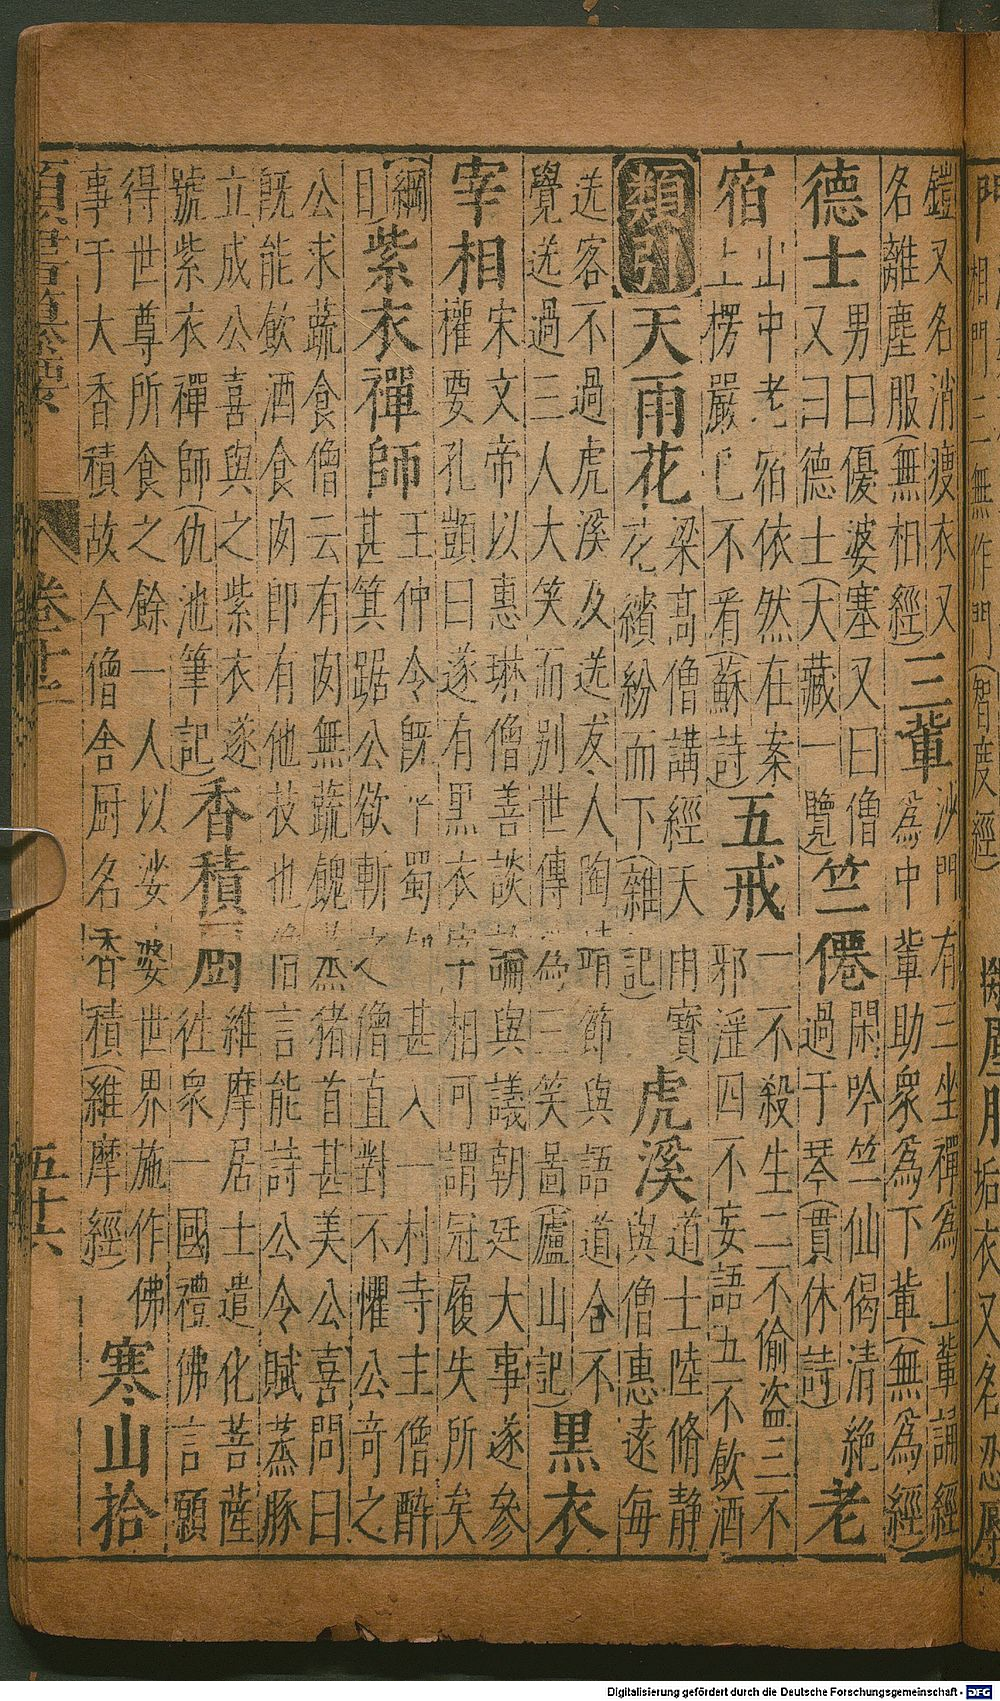 相門三無作門(智度經)
垢衣又名忍辱
鎧又名消瘦衣又
名離塵服(無相經)
三輩
沙門有三坐禪為上輩誦經
為中輩助衆為下輩(無為經)
德士
男曰優婆塞又曰僧
又曰德士(大藏一覽)
竺僊
閑吟竺仙偈清絶
過于琴(貫休詩)
老
宿
山中老宿依然在案
上楞嚴已不看(蘇詩)
五戒
一不殺生二不偷盗三不
邪淫四不妄語五不飲酒
類引
天雨花
梁高僧講經天雨寶
花繽紛而下(雜記)
虎溪
道士陸脩静
與僧惠遠每
送客不過虎溪及送友人陶靖節與語道合不
覺送過三人大笑而别世傳為三笑啚(廬山記)
黒衣
宰相
宋文帝以惠琳僧善談論與議朝廷大事遂參
權要孔顗曰遂有黒衣宰相可謂冠履失所矣
(綱
目)
紫衣禪師
王仲令既平蜀 甚入一村寺主僧醉
甚箕踞公欲斬之僧直對不懼公竒之
公求蔬食僧云有肉無蔬餽蒸猪首甚美公喜問曰
既能飲酒食肉即有他技也僧言能詩公令賦蒸豚
立成公喜與之紫衣遂
號紫衣禪師(仇池筆記)
香積厨
維摩居士遣化菩薩
徃衆一國禮佛言願
得世尊所食之餘一人以娑婆世界施作佛
事于大香積故今僧舍厨名香積(維摩經)
寒山拾
五十六
Digitalisierung gefördert durch die Deutsche Forschungsgemeinschaft - DFG